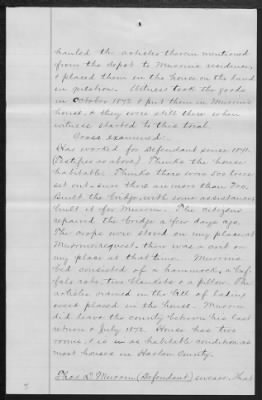 hauled the articles therein mentioned
from the depot to Munroms residence,
& placed them in the house on the land
in petition. Witness took the goods
in October 1872 & put them in Munroms
house, & they were still there when
witness started to this trial.
Cross examined:
Has worked for Defendant since 1871.
(Testifies as above) Thinks the house
habitable. Thinks there was 500 trees
set out - sure there are more than 300.
Built the bridge, with some assistance,
built it for The citizens
repaired the bridge a few days ago.
The crops were stored on my place at
request. there was a corb on
my place at that time.
bed consisted of a hammock, a buf-
falo robe, two blankets & a pillow. The
articles named in the bill of lading
were placed in the house.
did leave the county between his last
return & July 1872. House has two
rooms, & is in as habitable condition as
most houses in Harlan County.
Thos. D. (Defendant) swears, That